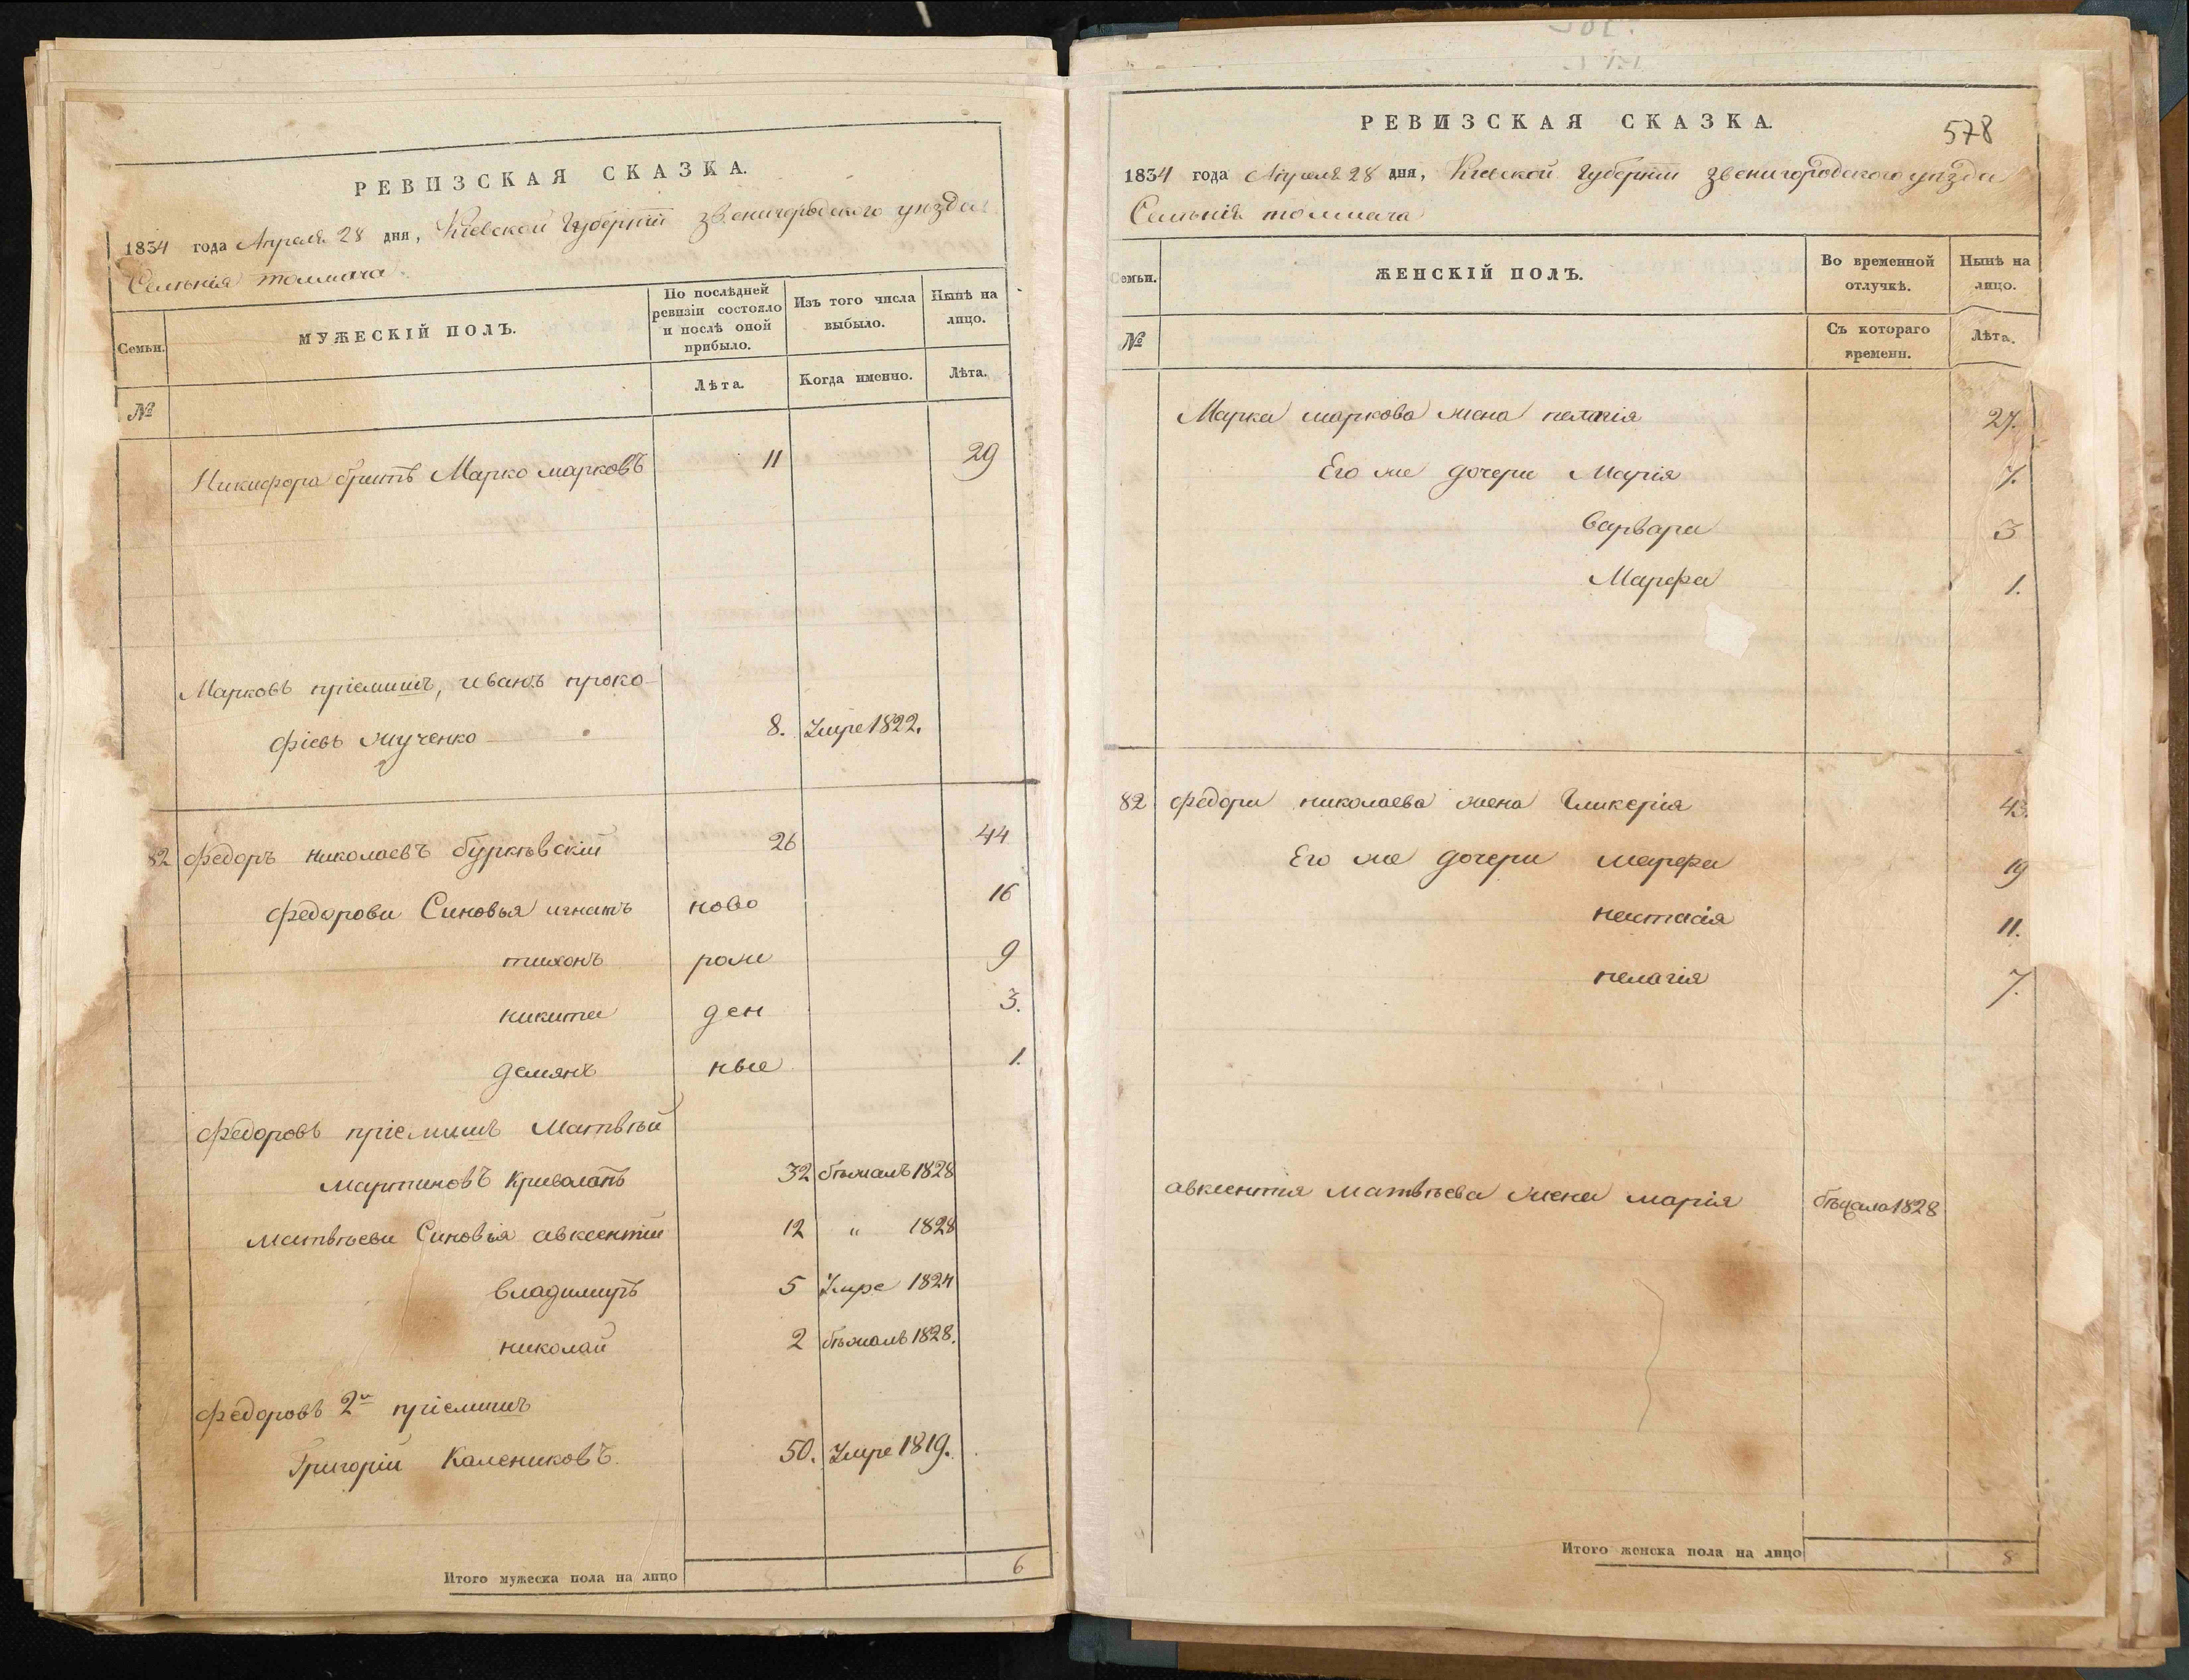 РЕВИЗСКАЯ СКАЗКА.
1834 года Апреля 28 дня, Кіевской Губерніи звенигородского уѣзда
Селенія толмача
Семьи.
МУЖЕСКІЙ ПОЛЪ.
По послѣдней ревизіи состояло и послѣ оной прибыло.
Изъ того числа выбыло.
Нынѣ на лицо.
№
Лѣта.
Когда именно.
Лѣта.
Никифора братъ Марко марковъ 11 29
Марковъ пріемишъ, иванъ проко-
фіевъ жученко 8. Умре 1822.
82 Федоръ николаевъ буркѣвскій 26 44
Федорови Синовья игнатъ ново 16
тихонъ рож 9
никита ден 3.
демянъ ные 1.
Федоровъ пріемишъ Матвѣй
мартиновъ Криволапъ 32 бѣжалъ 1828
матвѣеви Синовія авксентій 12 " 1828
владимиръ 5 Умре 1824
николай 2 бѣжалъ 1828.
Федоровъ 2й пріемишъ
Григорій Калениковъ. 50. Умре 1819.
Итого мужеска пола на лицо 6
РЕВИЗСКАЯ СКАЗКА.
578
1834 года Апреля 28 дня, Кіевской Губерніи звенигородского уѣзда
Селенія толмача
Семьи.
ЖЕНСКІЙ ПОЛЪ.
Во временной отлучкѣ.
Нынѣ на лицо.
№
Съ котораго времени.
Лѣта.
Марка маркова жена пелагія 27.
Его же дочери Марія 7.
варвара 3
Марфа 1.
82 федора николаева жена Гликерія 43.
Его же дочери марфа 19
настасія 11.
пелагія 7.
авксентія матвѣева жена марія бѣжала 1828
Итого женска пола на лицо 8